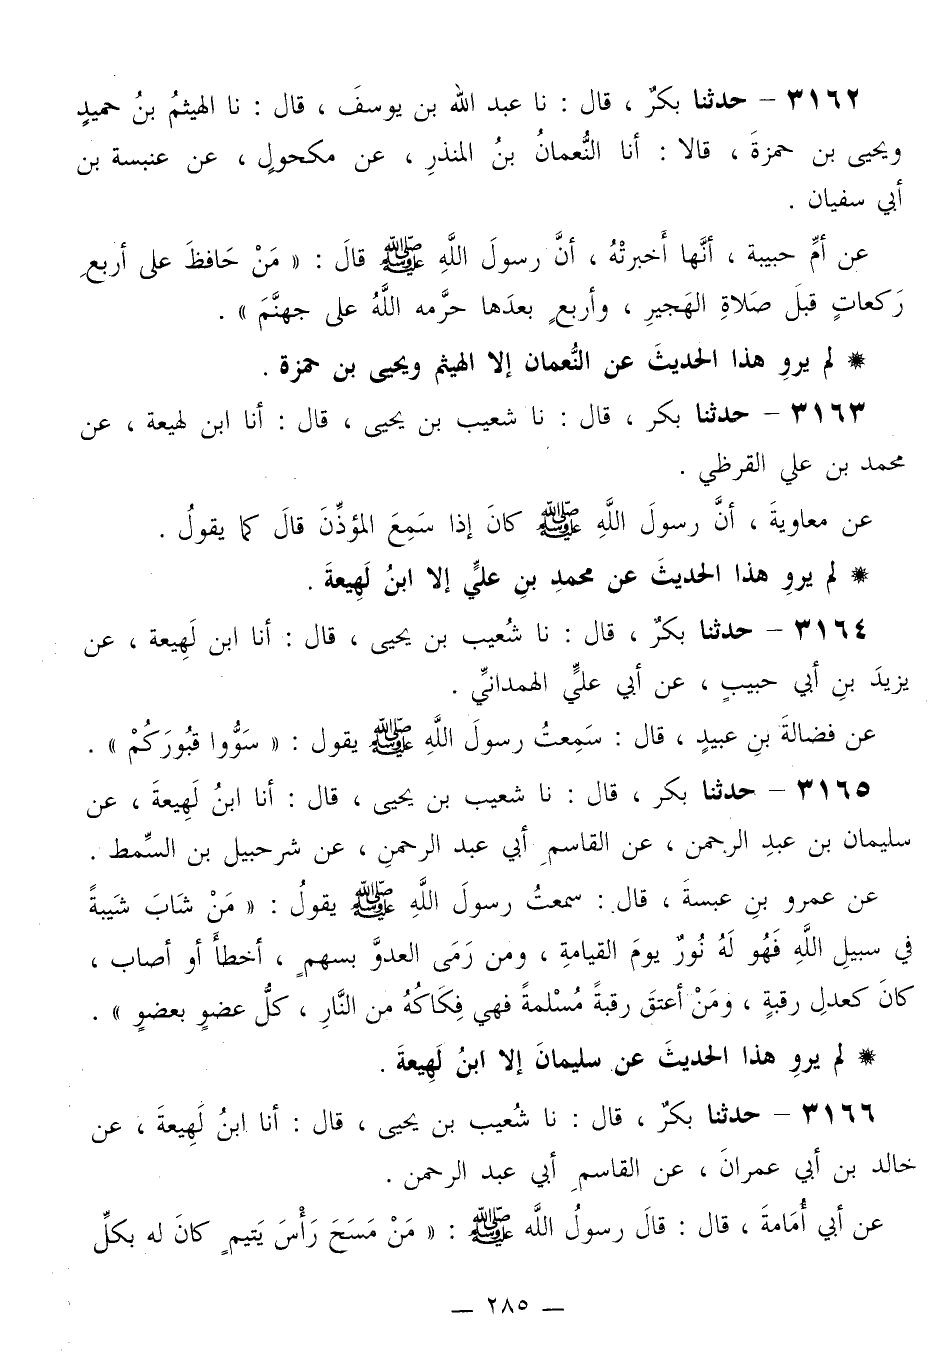 ٣١٦٢ – حدثنا بكرٌ ، قال : نا عبد الله بن يوسفَ ، قال : نا الهيثمُ بنُ حميدٍ
ويحيى بن حمزةَ ، قالا : أنا النُّعمانُ بنُ المنذرِ ، عن مكحولٍ ، عن عنبسة بن
أبي سفيان .
عن أمِّ حبيبة ، أنَّها أخبرتْهُ ، أنَّ رسولَ اللَّهِ ﷺ قالَ : « مَنْ حَافظَ على أربعِ
رَكعاتٍ قبلَ صَلاةِ الهَجيرِ ، وأربعٍ بعدَها حرَّمه اللَّهُ على جهنَّمَ » .
* لم يروِ هذا الحديثَ عن النُّعمان إلا الهيثم ويحيى بن حمزة .
٣١٦٣ – حدثنا بكر ، قال : نا شعيب بن يحيى ، قال : أنا ابن لهيعة ، عن
محمد بن علي القرظي .
عن معاويةَ ، أنَّ رسولَ اللَّهِ ﷺ كانَ إذا سَمِعَ المؤذِّنَ قالَ كما يقولُ .
* لم يروِ هذا الحديثَ عن محمدِ بنِ عليٍّ إلا ابنُ لَهِيعةَ .
٣١٦٤ – حدثنا بكرٌ ، قال : نا شُعيب بن يحيى ، قال : أنا ابن لَهِيعة ، عن
يزيدَ بنِ أبي حبيبٍ ، عن أبي عليٍّ الهمدانيِّ .
عن فضالةَ بنِ عبيدٍ ، قال : سَمِعتُ رسولَ اللَّهِ ﷺ يقول : « سَوُّوا قبُورَكُمْ » .
٣١٦٥ – حدثنا بكر ، قال : نا شعيب بن يحيى ، قال : أنا ابنُ لَهِيعةَ ، عن
سليمان بن عبدِ الرحمن ، عن القاسمِ أبي عبد الرحمنِ ، عن شرحبيل بن السِّمط .
عن عمرو بنِ عبسةَ ، قال : سمعتُ رسولَ اللَّهِ ﷺ يقولُ : « مَنْ شَابَ شَيبةً
في سبيلِ اللَّهِ فَهُو لَهُ نُورٌ يومَ القيامةِ ، ومن رَمَى العدوَّ بسهمٍ ، أخطأَ أو أصاب ،
كانَ كعدلِ رقبةٍ ، ومَنْ أعتقَ رقبةً مُسْلمةً فهي فِكَاكُهُ من النَّارِ ، كلُّ عضوٍ بعضوٍ » .
* لم يروِ هذا الحديثَ عن سليمانَ إلا ابنُ لَهِيعةَ .
٣١٦٦ – حدثنا بكرٌ ، قال : نا شُعيب بن يحيى ، قال : أنا ابنُ لَهِيعةَ ، عن
خالد بن أبي عمرانَ ، عن القاسمِ أبي عبد الرحمن .
عن أبي أُمَامةَ ، قال : قالَ رسولُ اللَّه ﷺ : « مَنْ مَسَحَ رَأْسَ يَتيمٍ كانَ له بكلِّ
— ٢٨٥ —